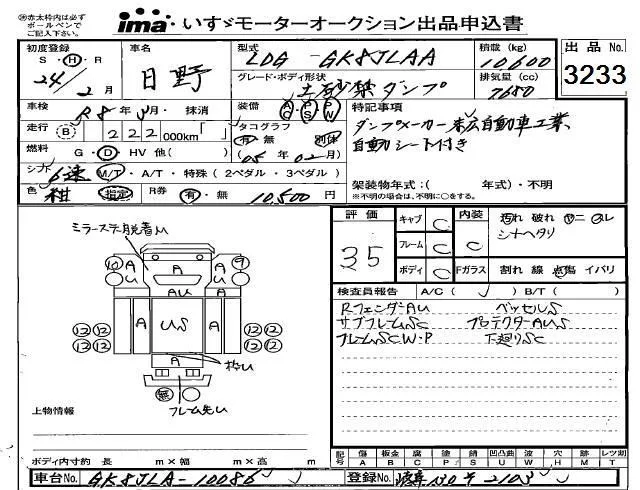 ㊟赤太枠内は必ず
ボールペンで
ご記入下さい。
ima いすゞモーターオークション出品申込書
初度登録 S・H・R 24年2月
車名 日野
型式 LDG-GK8JLAA
積載(kg) 10,600
出品No. 3233
グレード・ボディ形状 土砂禁ダンプ
排気量(cc) 7680
車検 R8年 月・抹消
装備 AC PS PW
特記事項
走行 B 222,000km「 」
タコグラフ 有・無 別体
ダンプメーカー 自動車工業
燃料 G・D・HV 他( )
(05年02月)
自動シート付き
シフト 6速 M/T・A/T・特殊(2ペダル・3ペダル)
架装物年式:( 年式)・不明
※不明の場合は、不明に○をする。
色 紺 指定 R券 有・無 10,500円
評価 35
キャブ C
フレーム C
ボディ C
内装 C
Fガラス
汚れ 破れ ヤニ スレ
シートヘタリ
割れ 線 点傷 イバリ
検査員報告 A/C( ) B/T( )
RフェンダーAU ベッセルS
サブフレームSC プロテクターAUS
フレームSCW・P 下廻りSC
ミラーステー脱着U
10 A 9
A A A
AU
A US A A
12 12 12 12
12 12 12 12
A
枠U
無
フレーム先U
上物情報
ボディ内寸約 長 m×幅 m×高 m
記号 傷A 板金B 腐C 塗P 補S 錆S 凹凸曲U 波W 穴H 跡M レツ割T
車台No. GK8JLA-10086
登録No. 130 2103